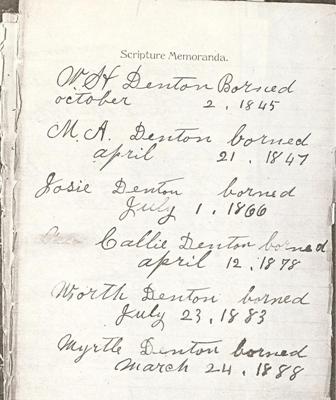 Scripture Memoranda.
W. H Denton Borned
october 2, 1845
M. A. Denton borned
april 21, 1847
Josie Denton borned
July 1, 1866
Callie Denton borned
april 12, 1878
Worth Denton borned
July 23, 1883
Myrtle Denton borned
March 24, 1888